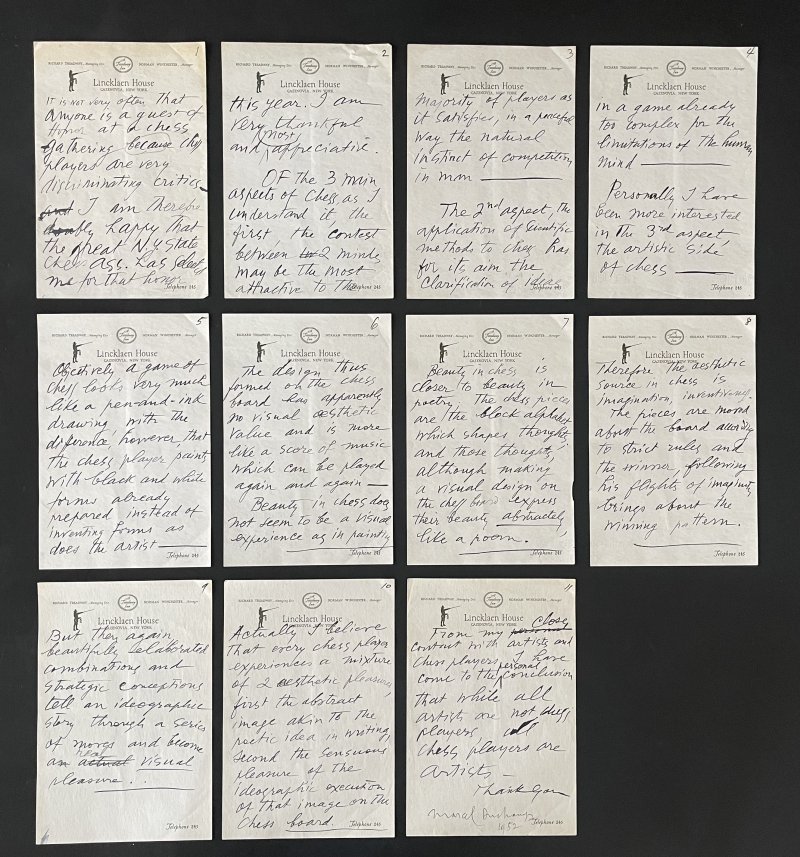 1
RICHARD TREADWAY, Managing Dir. NORMAN WINCHESTER, Manager
Treadway Inn
Lincklaen House
CAZENOVIA, NEW YORK
It is not very often that
anyone is a guest of
Honor at a chess
gathering because chess
players are very
discriminating critics
and I am therefore
doubly happy that
the great N.Y. State
Chess Ass. has select
me for that honor
Telephone 245
2
RICHARD TREADWAY, Managing Dir. NORMAN WINCHESTER, Manager
Treadway Inn
Lincklaen House
CAZENOVIA, NEW YORK
this year. I am
very thankful
and most, appreciative.
Of the 3 main
aspects of chess, as I
understand it, the
first the contest
between 2 minds
may be the most
attractive to the
Telephone 245
3
RICHARD TREADWAY, Managing Dir. NORMAN WINCHESTER, Manager
Treadway Inn
Lincklaen House
CAZENOVIA, NEW YORK
majority of players as
it satisfies, in a peaceful
way the natural
instinct of competition
in man
The 2nd aspect, the
application of scientific
methods to chess has
for its aim the
clarification of ideas
Telephone 245
4
RICHARD TREADWAY, Managing Dir. NORMAN WINCHESTER, Manager
Treadway Inn
Lincklaen House
CAZENOVIA, NEW YORK
in a game already
too complex for the
limitations of the human
mind
Personally I have
been more interested
in the 3rd aspect
the artistic side
of chess
Telephone 245
5
RICHARD TREADWAY, Managing Dir. NORMAN WINCHESTER, Manager
Treadway Inn
Lincklaen House
CAZENOVIA, NEW YORK
Objectively a game of
chess looks very much
like a pen-and-ink
drawing, with the
difference, however, that
the chess player paints
with black and white
forms already
prepared instead of
inventing forms as
does the artist
Telephone 245
6
RICHARD TREADWAY, Managing Dir. NORMAN WINCHESTER, Manager
Treadway Inn
Lincklaen House
CAZENOVIA, NEW YORK
The design thus
formed on the chess
board has apparently
no visual aesthetic
value and is more
like a score of music
which can be played
again and again —
Beauty in chess does
not seem to be a visual
experience as in painting
Telephone 245
7
RICHARD TREADWAY, Managing Dir. NORMAN WINCHESTER, Manager
Treadway Inn
Lincklaen House
CAZENOVIA, NEW YORK
Beauty in chess is
closer to beauty in
poetry. The chess pieces
are the block alphabet
which shapes thoughts
and those thoughts,
although making
a visual design on
the chess board express
their beauty abstractely,
like a poem.
Telephone 245
8
RICHARD TREADWAY, Managing Dir. NORMAN WINCHESTER, Manager
Treadway Inn
Lincklaen House
CAZENOVIA, NEW YORK
Therefore the aesthetic
source in chess is
imagination, inventiveness.
The pieces are moved
about the board according
to strict rules and
the winner, following
his flights of imagination
brings about the
winning pattern.
Telephone 245
9
RICHARD TREADWAY, Managing Dir. NORMAN WINCHESTER, Manager
Treadway Inn
Lincklaen House
CAZENOVIA, NEW YORK
But they again
beautifully belaborated
combinations and
strategic conceptions
tell an ideographic
story through a series
of moves and become
a real actual visual
pleasure...
Telephone 245
10
RICHARD TREADWAY, Managing Dir. NORMAN WINCHESTER, Manager
Treadway Inn
Lincklaen House
CAZENOVIA, NEW YORK
Actually I believe
that every chess player
experiences a mixture
of 2 aesthetic pleasures,
first the abstract
image akin to the
poetic idea in writing,
second the sensuous
pleasure of the
ideographic execution
of that image on the
chess board.
Telephone 245
11
RICHARD TREADWAY, Managing Dir. NORMAN WINCHESTER, Manager
Treadway Inn
Lincklaen House
CAZENOVIA, NEW YORK
From my personal close
contact with artists and
chess players, I have
come to the personal conclusion
that while all
artists are not chess
players, all
chess players are
artists —
Thank you
Marcel Duchamp
1952
Telephone 245